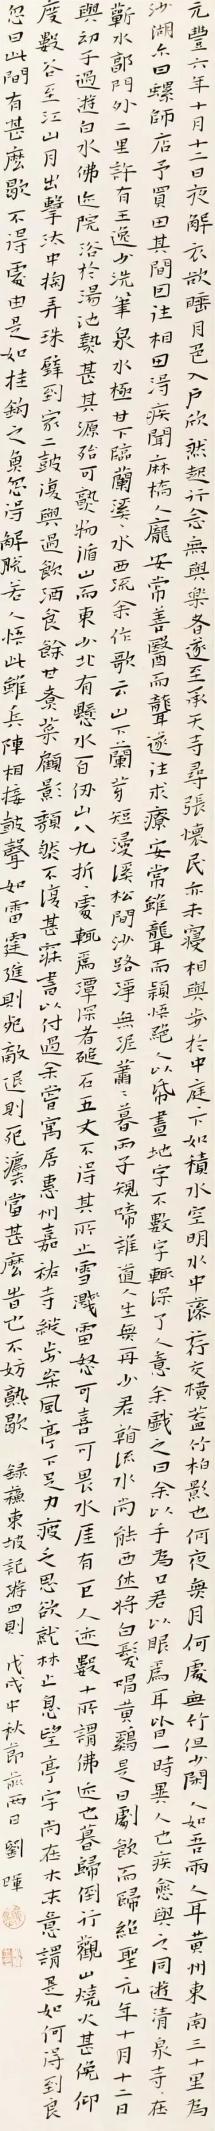 元豐六年十月十二日夜解衣欲睡月色入戶欣然起行念無與樂者遂至承天寺尋張懷民亦未寢相與步於中庭下如積水空明水中藻荇交橫蓋竹柏影也何夜無月何處無竹但少閑人如吾兩人耳黃州東南三十里為
沙湖亦曰螺師店予買田其間因往相田得疾聞麻橋人龐安常善醫而聾遂往求療安常雖聾而穎悟絕人以帋畫地字不數字輒深了人意余戲之曰余以手為口君以眼為耳皆一時異人也疾愈與之同遊清泉寺寺在
蘄水郭門外二里許有王逸少洗筆泉水極甘下臨蘭溪溪水西流余作歌云山下蘭芽短浸溪松間沙路淨無泥蕭蕭暮雨子規啼誰道人生無再少君看流水尚能西休將白髮唱黃鷄是日劇飲而歸紹聖元年十月十二日
與幼子過遊白水佛迹院浴於湯池熱甚其源殆可熟物循山而東少北有懸水百仞山八九折折處輒為潭深者磓石五丈不得其所止雪濺雷怒可喜可畏水厓有巨人迹數十所謂佛迹也暮歸倒行觀山燒火甚俛仰
度數谷至江山月出擊汰中掬弄珠璧到家二鼓復與過飲酒食餘甘煮菜顧影頹然不復甚寐書以付過余嘗寓居惠州嘉祐寺縱步枩風亭下足力疲乏思欲就林止息望亭宇尚在木末意謂是如何得到良
忽曰此間有甚麼歇不得處由是如挂鈎之魚忽得解脫若人悟此雖兵陣相接鼓聲如雷霆進則死敵退則死灋當甚麼旹也不妨熟歇 錄蘇東坡記遊四則 戊戌中秋節前兩日劉暉